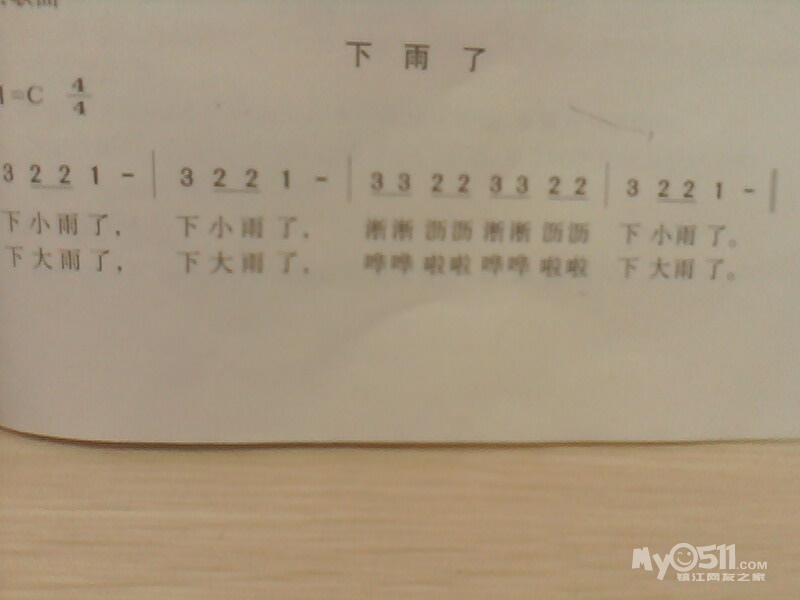 下雨了
1=C 4/4
3 2 2 1 - | 3 2 2 1 - | 3 3 2 2 3 3 2 2 | 3 2 2 1 - ‖
下小雨了， 下小雨了， 淅淅 沥沥 淅淅 沥沥 下小雨了。
下大雨了， 下大雨了， 哗哗 啦啦 哗哗 啦啦 下大雨了。
My0511.COM
镇江网友之家